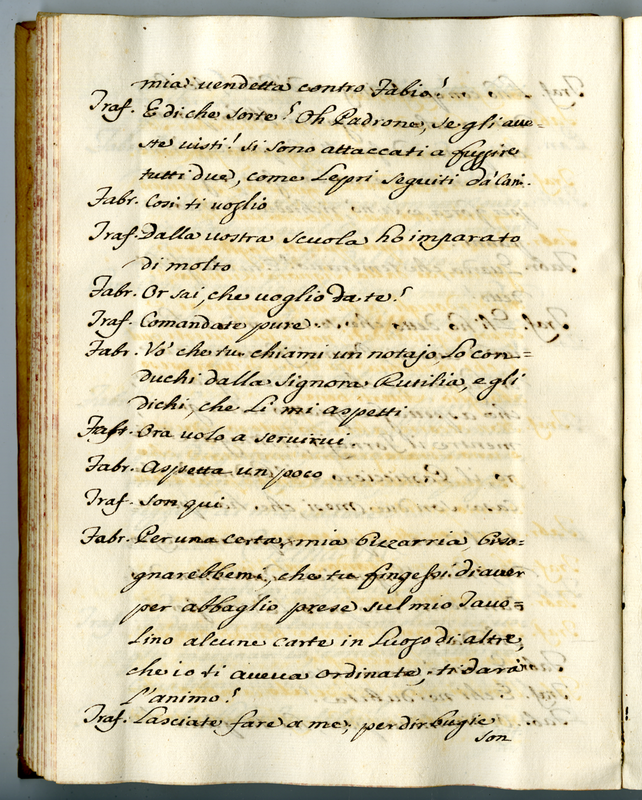 mia vendetta contro Fabio?
Traf. E di che sorte! Oh Padrone, se gli aue=
ste uisti! Si sono attaccati a fuggire
tutti due, come Lepri seguiti da' Cani.
Fabr. Così ti voglio
Traf. Dalla uostra scuola ho imparato
di molto
Fabr. Or sai, che uoglio da te?
Traf. Comandate pure
Fabr. Vo' che tu chiami un notajo Lo con=
duchi dalla Signora Rutilia, e gli
dichi, che Li mi aspetti
Traf. Ora uolo a seruirui
Fabr. Aspetta un poco
Traf. Son qui
Fabr. Per una certa, mia bizarria, biso=
gnarebbemi, che tu fingessi di auer
per abbaglio prese sul mio Tauo=
Lino alcune carte in Luogo di altre,
che io ti aueua ordinate, ti darà
L'animo?
Traf. Lasciate fare a me, per dir bugie
son